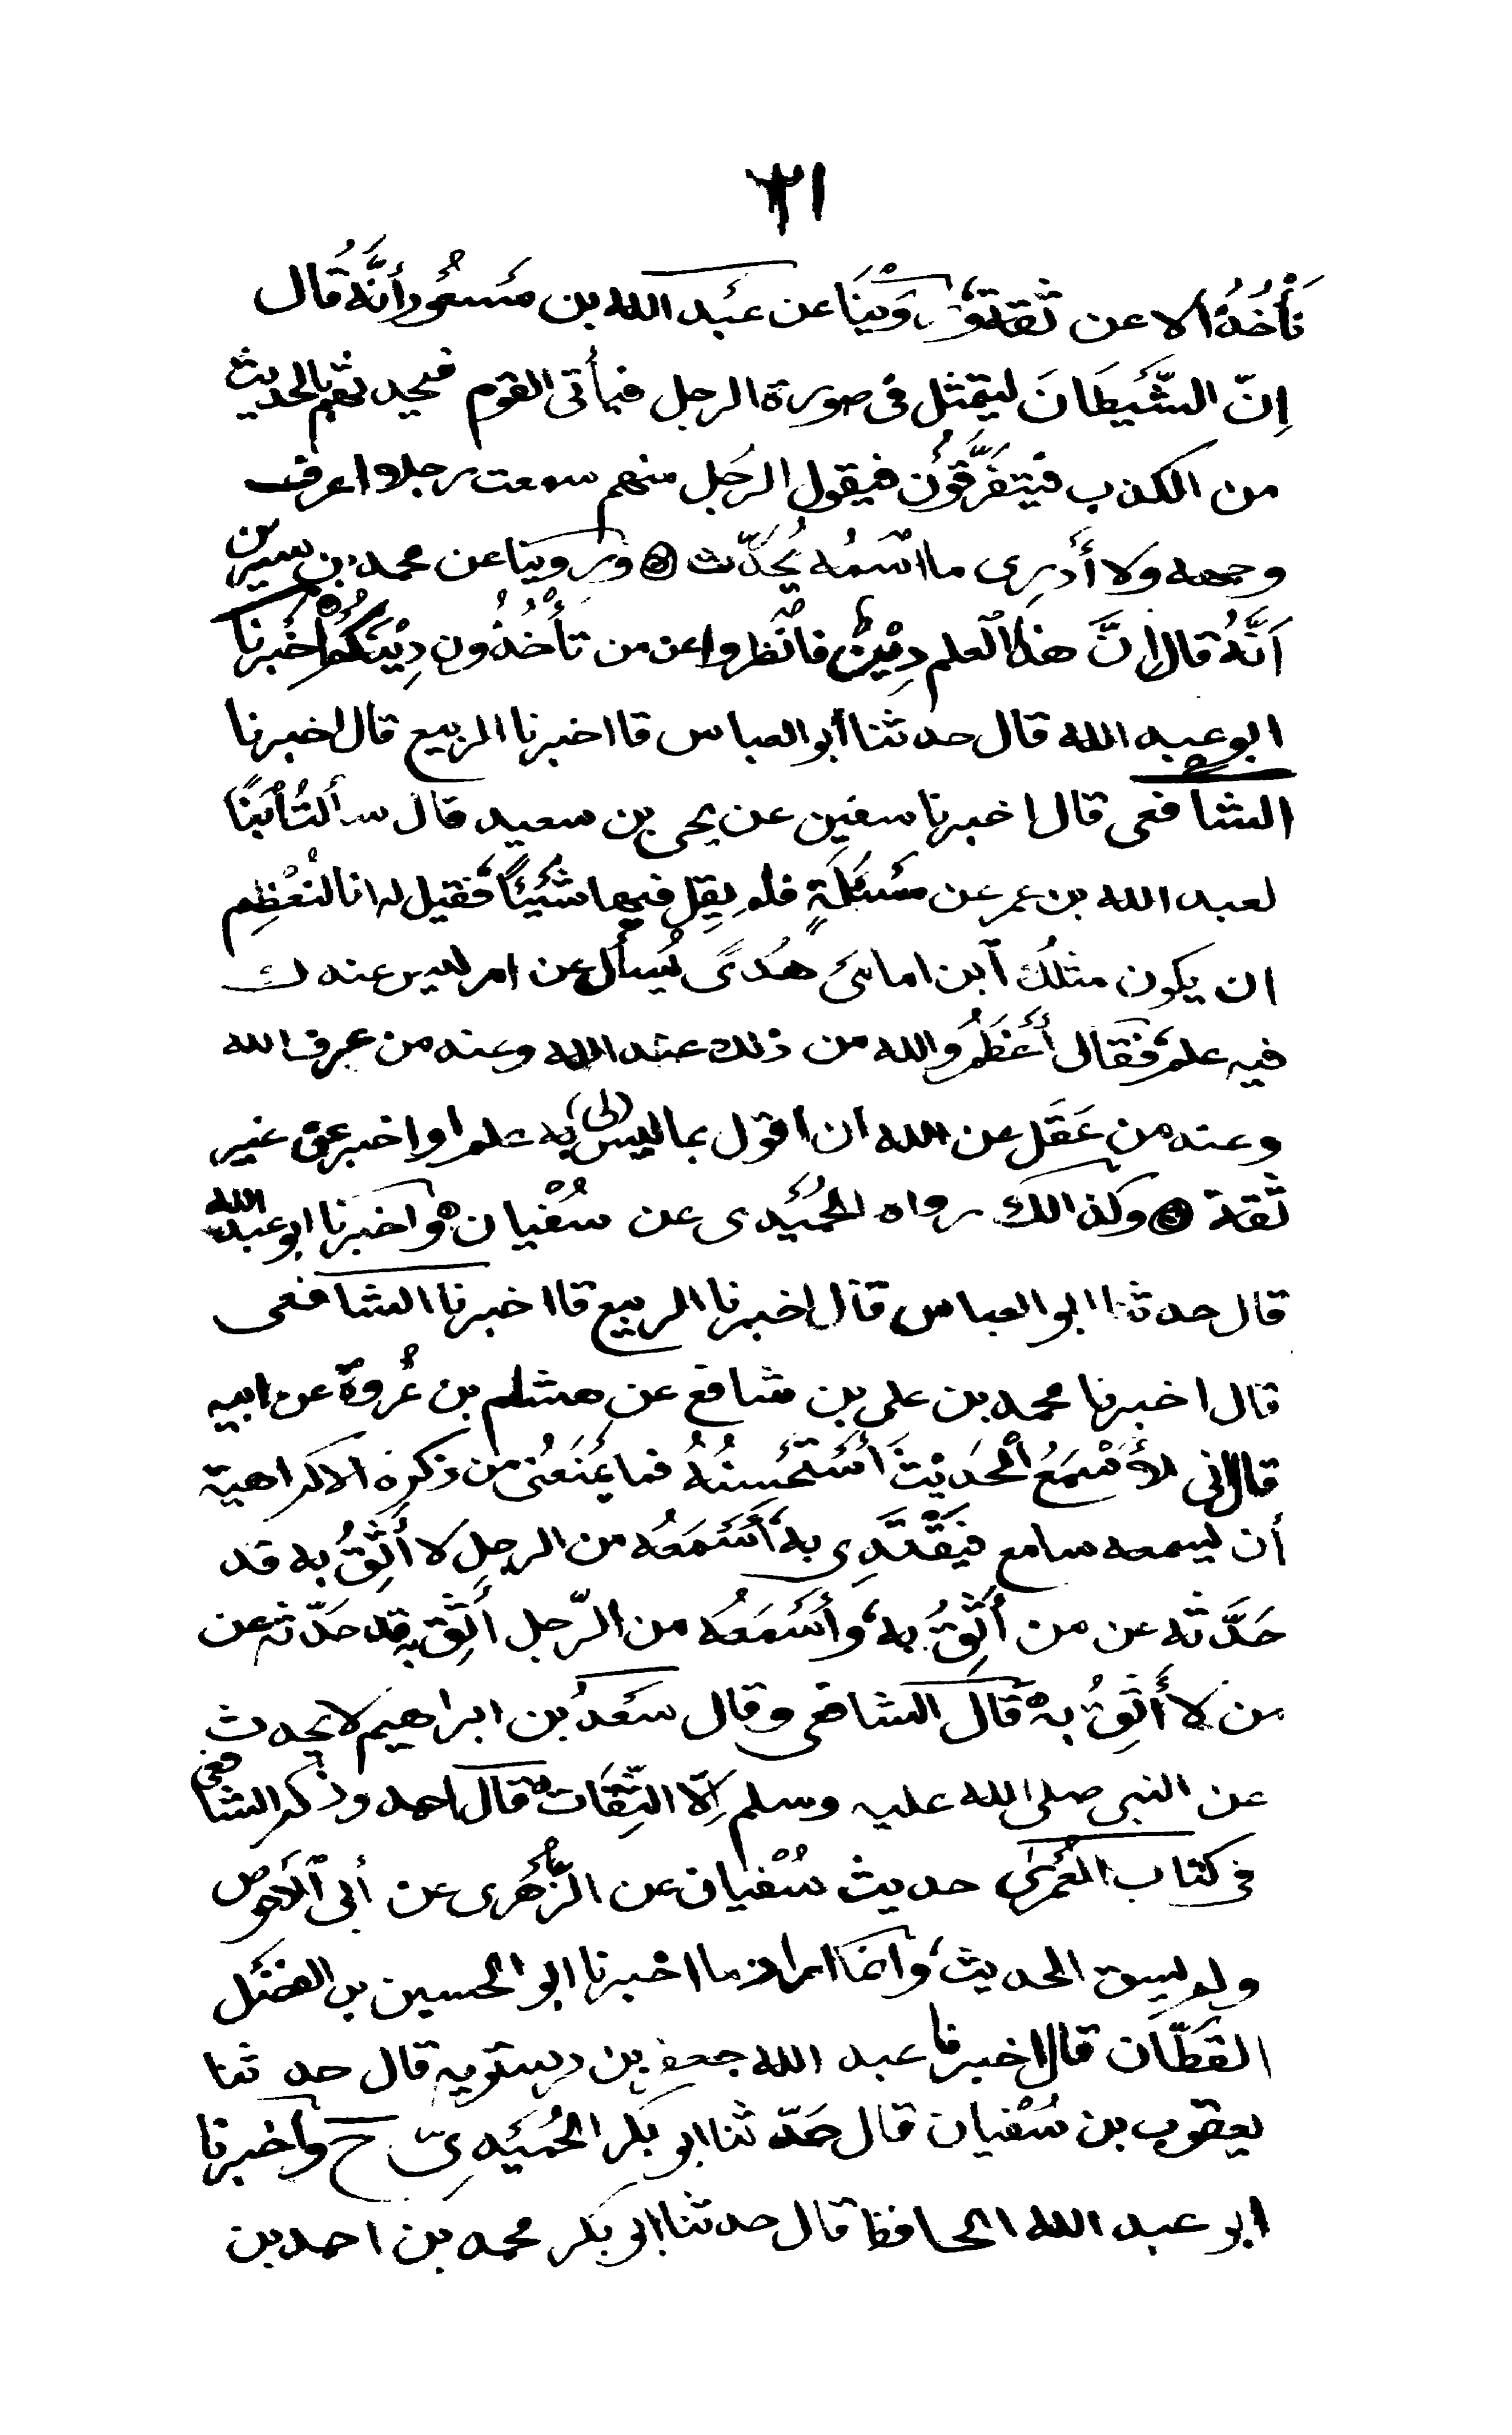 ٢١
نَأْخُذُهُ الا عن ثقة وَرُوِّيْنَا عن عَبْد الله بن مَسْعُود أنَّه قَال
اِنّ الشَّيْطَانَ ليتمثل فى صورة الرجل فيأتى القوم فيحدثهم بالحديث
من الكذب فيَتفَرَّقُوْن فيقول الرجُل منهم سمعت رجلا اعرف
وجهه ولا أَدرى ما اسْمُه يُحَدّث ۞ وروينا عن محمد بن سيرين
اَنَّهُ قال اِنَّ هذا العلم دِيْنٌ فانْظروا عن من تأْخُذُون دِيْنَكُمْ اخْبرنا
ابو عبد الله قال حدثنا أبو العباس قا اخبرنا الربيع قال اخبرنا
الشافعى قال اخبرنا سفين عن يحى بن سعيد قال سألتُ ابْنًا
لعبد الله بن عمر عن مَسْئَلَةٍ فلم يقل فيها شَيْئًا فقيل له انا لنُعْظِم
ان يكون مثلُك ابن امامَىْ هُدًى يُسأل عن امر ليس عندك
فيه علم فقَال أَعْظَمُ والله من ذلك عند الله وعند من عرف الله
وعند من عَقَل عن الله ان اقول بما ليس (لى) به علم او اخبر عن غير
ثقة ۞ وكذالك رواه الحُمَيْدى عن سُفْيان ه واخبرنا ابو عبد الله
قال حدثنا ابو العباس قال اخبرنا الربيع قا اخبرنا الشافعى
قال اخبرنا محمد بن على بن شافع عن هشام بن عُروة عن ابيه
قال انى لأَسْمَعُ الْحَدِيْثَ أَسْتَحْسِنُهُ فما يَمْنَعُنى من ذكره الا كراهية
أن يسمعه سامع فيَقْتَدِى به أَسْمَعُه من الرجل لا أَثِقُ به قد
حَدَّثه عن من أَثِقُ به وأَسْمَعُه من الرّجل أَثِق به قد حَدّثه عن
من لا أَثِقُ به ه قَال الشافعى وقال سَعْدُ بن ابراهيم لا يحدث
عن النبى صلى الله عليه وسلم اِلّا الثِّقَات ه قال احمد وذكر الشافعى
فى كتاب العُمْرَى حديث سُفْيان عن الزُّهْرى عن أبى الاحوص
ولم يسق الحديث وانما اراد ما اخبرنا ابو الحسين بن الفضْل
القَطّان قال اخبرنا عبد الله جعفر بن درستويه قال حدثنا
يعقوب بن سُفْيان قال حَدّثنا ابو بكر الحُمَيْدِىّ ح واخبرنا
ابو عبد الله الحافظ قال حدثنا ابو بكر محمد بن احمد بن